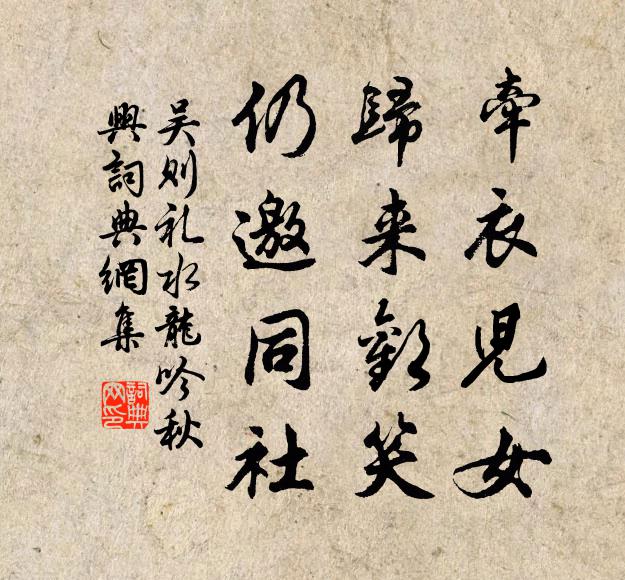 牽衣兒女
歸來歡笑
仍邀同社
吴则礼水龍吟秋
興詞典網集
詞典网印